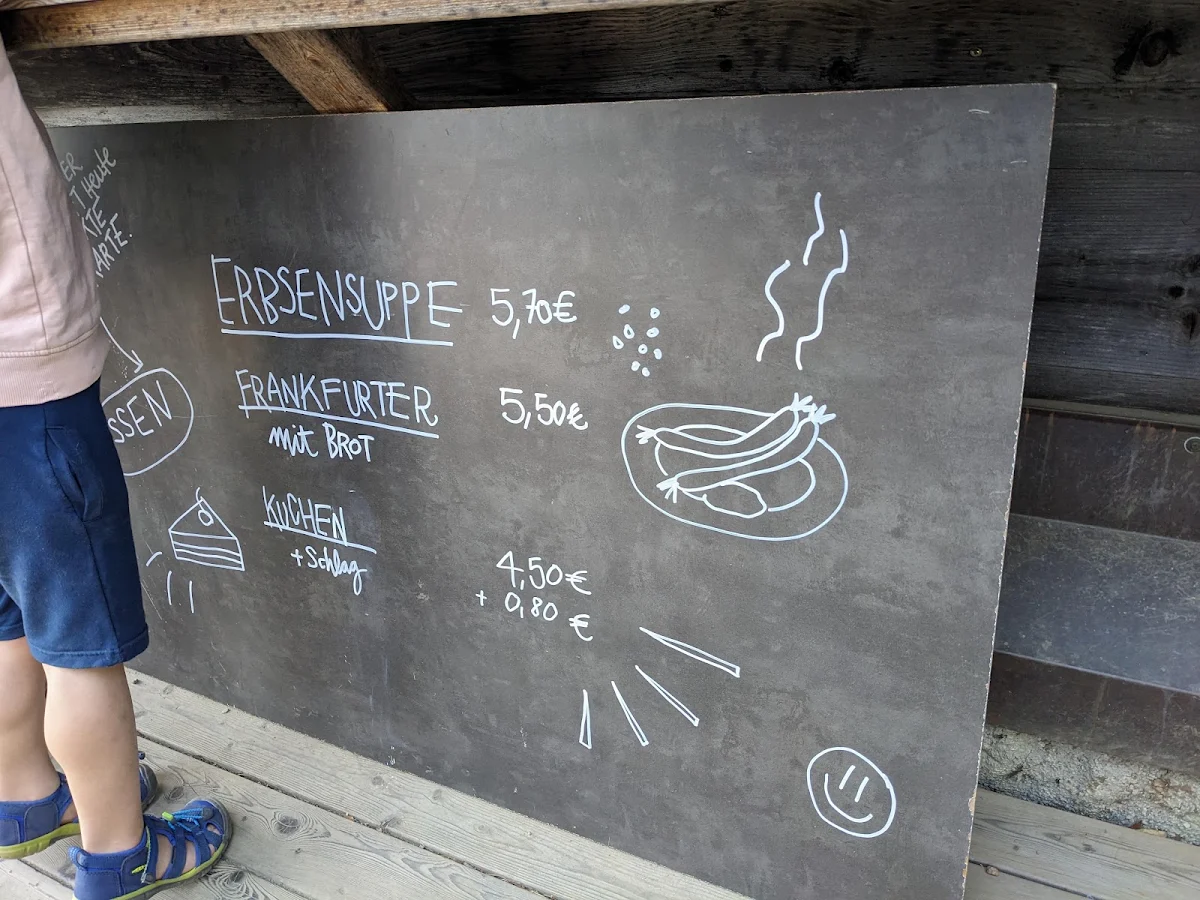 Heute
ERBSENSUPPE 5,70€
FRANKFURTER 5,50€
mit BROT
KUCHEN
+ Schlag
4,50€
+ 0,80 €